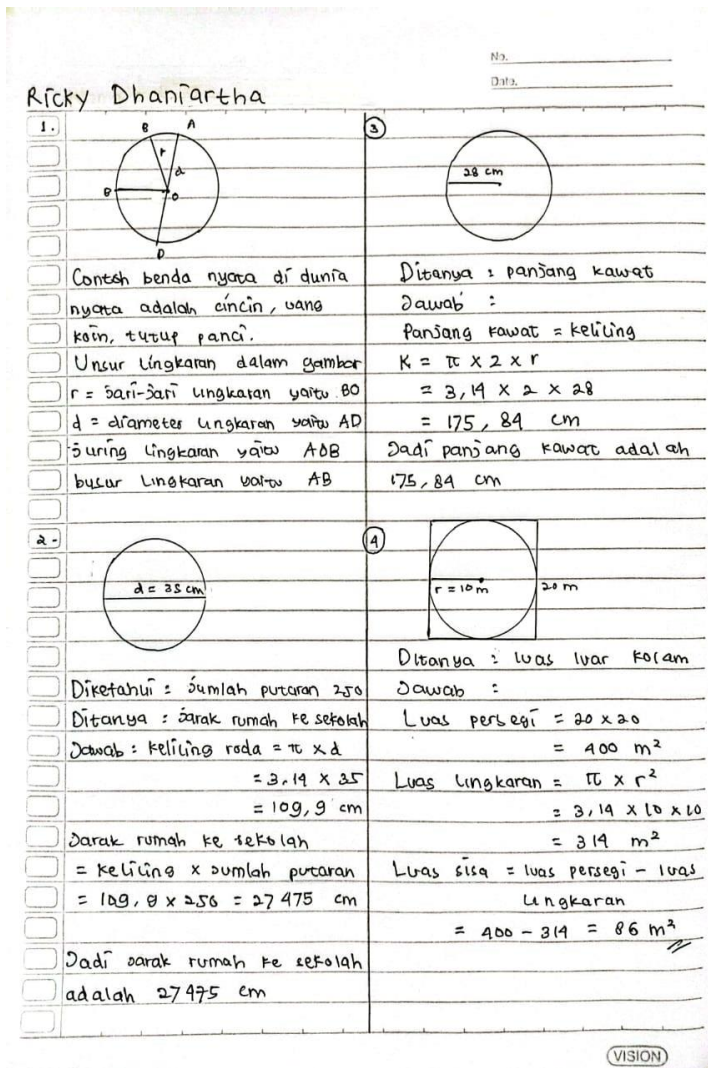 No.
Date.
Ricky Dhaniartha
1.
B A
r
d
B
O
D
Contoh benda nyata di dunia
nyata adalah cincin, uang
koin, tutup panci.
Unsur lingkaran dalam gambar
r = jari-jari lingkaran yaitu BO
d = diameter lingkaran yaitu AD
juring lingkaran yaitu AOB
busur lingkaran yaitu AB
2-
d = 35 cm
Diketahui : jumlah putaran 250
Ditanya : jarak rumah ke sekolah
Jawab : keliling roda = π x d
= 3,14 x 35
= 109,9 cm
Jarak rumah ke sekolah
= keliling x jumlah putaran
= 109,9 x 250 = 27475 cm
Jadi jarak rumah ke sekolah
adalah 27475 cm
3
28 cm
Ditanya : panjang kawat
Jawab :
Panjang kawat = keliling
K = π x 2 x r
= 3,14 x 2 x 28
= 175,84 cm
Jadi panjang kawat adalah
175,84 cm
4
r = 10 m
20 m
Ditanya : luas luar kolam
Jawab :
Luas persegi = 20 x 20
= 400 m²
Luas lingkaran = π x r²
= 3,14 x 10 x 10
= 314 m²
Luas sisa = luas persegi - luas
lingkaran
= 400 - 314 = 86 m²
VISION